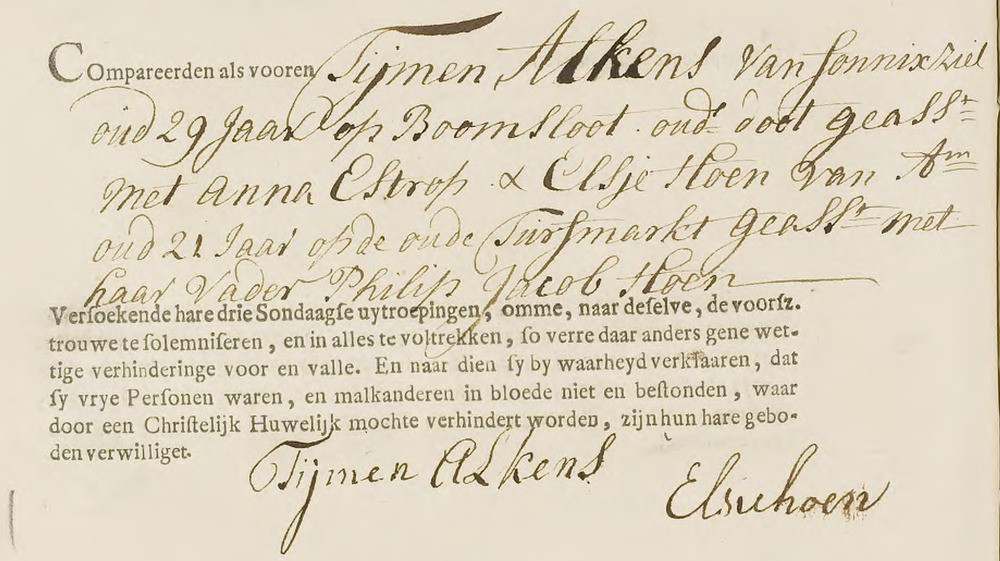 Compareerden als vooren Tijmen Alkens van Sonnixziel
oud 29 Jaar op Boomsloot. oud.s doot geasst
met Anna Estrop & Elsje Hoen van Am
oud 21 Jaar op de oude Turfmarkt geasst met
haar Vader Philip Jacob Hoen
Versoekende hare drie Sondaagse uytroepingen, omme, naar deselve, de voorsz.
trouwe te solemniseren, en in alles te voltrekken, so verre daar anders gene wet-
tige verhinderinge voor en valle. En naar dien sy by waarheyd verklaaren, dat
sy vrye Personen waren, en malkanderen in bloede niet en bestonden, waar
door een Christelijk Huwelijk mochte verhindert worden, zijn hun hare gebo-
den verwilliget.
Tijmen ALkens
Elsie hoen